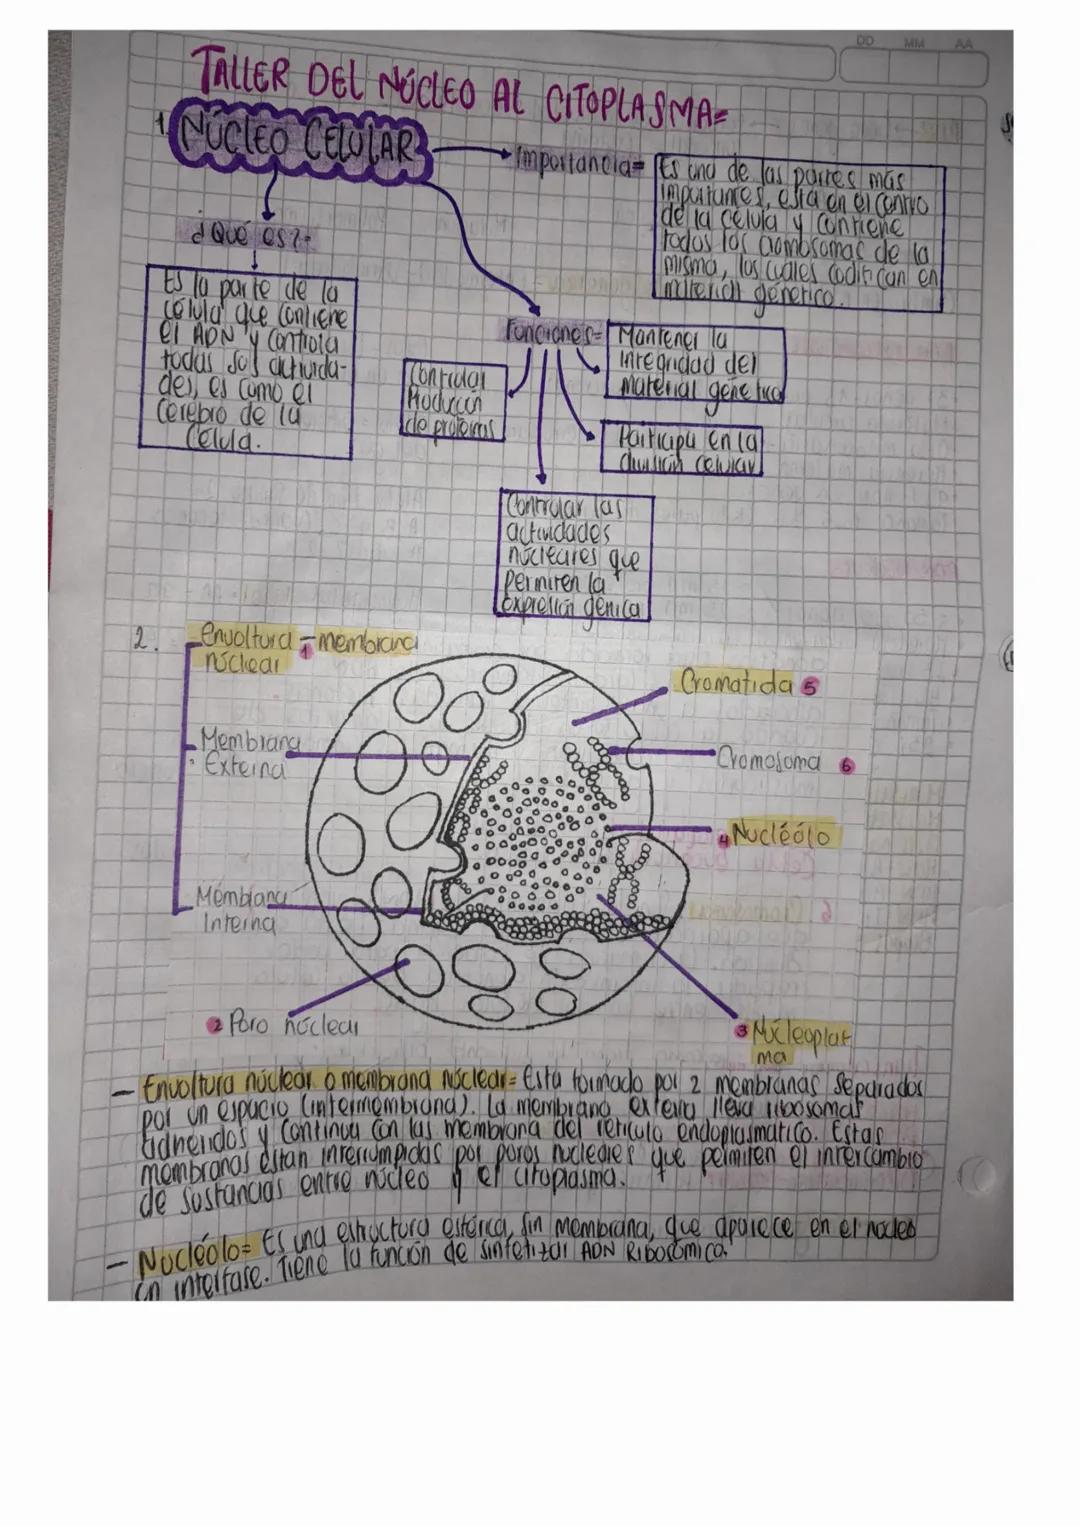 DD MM AA
TALLER DEL NÚCLEO AL CITOPLASMA=
1. NÚCLEO CELULAR
Importancia=
Es una de las partes más
importantes, esta en el centro
de la célula y contiene
todos los cromosomas de la
misma, los cuáles codifican en
material génetico.
¿Qué es?=
Es la parte de la
célula que contiene
el ADN y controla
todas sus activida-
des, es como el
cerebro de la
célula.
Funciones=
Mantener la
integridad del
material genetico
Controlar
Producción
de proteínas
Participa en la
división celular
Controlar las
actividades
núcleares que
permiten la
expresión génica
2.
Envoltura - membrana
núclear 1
Cromatida 5
Membrana
Externa
Cromosoma 6
4 Nucléólo
Membrana
Interna
2 Poro núclear
3 Núcleoplas
ma
— Envoltura núclear o membrana núclear= Esta formado por 2 membranas separados
por un espacio (intermembrana). La membrana externa lleva ribosomas
adheridos y continua con las membrana del reticulo endoplasmatico. Estas
membranas estan interrumpidas por poros nucleares que permiten el intercambio
de sustancias entre núcleo y el citoplasma.
— Nucléolo= Es una estructura esférica, sin membrana, que aparece en el nucleo
en interfase. Tiene la función de sintetizar ADN Ribosómico.